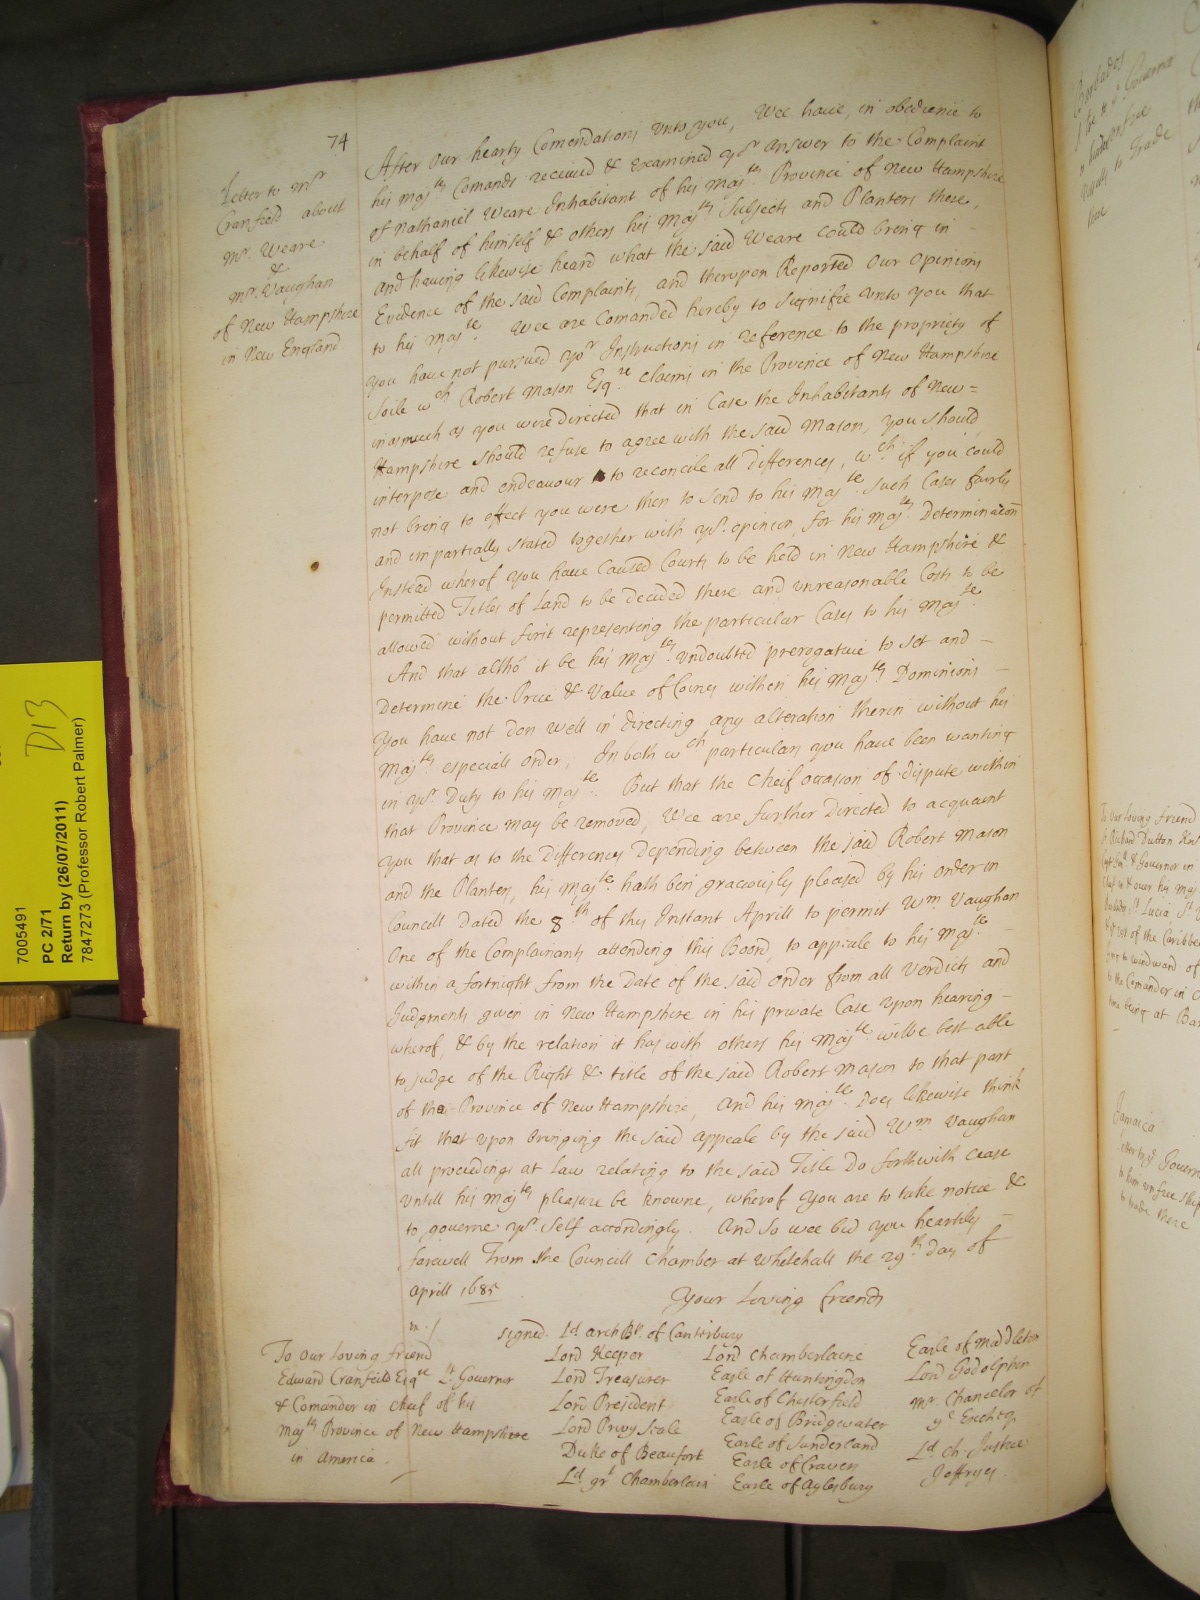 74
Letter to Mr
Cranfield about
Mr. Weare
&
Mr. Vaughan
of New Hampshire
in New England
After Our hearty Comendations unto you, Wee have, in obedience to
his Majts Comands received & examined yor Answer to the Complaint
of Nathaniel Weare Inhabitant of his Majts Province of New Hampshire
in behalf of himself & others his Majts Subjects and Planters there,
and having likewise heard what the said Weare could bring in
Evidence of the said Complaints, and therupon Reported Our Opinions
to his Majte. Wee are Comanded hereby to Signifie unto you that
You have not pursued yor Instructions in reference to the propriety of
Soile wch Robert Mason Esqre claims in the Province of New Hampshire
inasmuch as you were directed that in Case the Inhabitants of New=
Hampshire should refuse to agree with the said Mason, you should
interpose and endeavour to reconcile all differences, wch if you could
not bring to effect you were then to send to his Majte. such Cases fairly
and impartially stated together with yr. opinion, for his Majts. Determinacon
Instead wherof you have Caused Courts to be held in New Hampshire &
permitted Titles of Land to be decided there and unreasonable Costs to be
allowed without first representing the particular Cases to his Majte.
And that altho' it be his Majts. undoubted prerogative to set and –
Determine the Price & Value of Coines within his Majts Dominions –
You have not don well in directing any alteration therin without his
Majts. especiall order, In both wch particulars you have been wanting
in yr. Duty to his Majte. But that the Cheif occasion of dispute within
that Province may be removed, Wee are further Directed to acquaint
you that as to the Differences Depending between the said Robert Mason
and the Planters, his Majte. hath ben graciously pleased by his Order in
Councill Dated the 8th of this Instant Aprill to permit Wm Vaughan
One of the Complainants attending this Board, to appeale to his Majte. –
within a fortnight from the Date of the said Order from all Verdicts and
Judgments given in New Hampshire in his private Case upon hearing –
wherof, & by the relation it has with others his Majte. wilbe best able
to judge of the Right & title of the said Robert Mason to that part
of the Province of New Hampshire, And his Majte. Does likewise think
fit that upon bringing the said appeale by the said Wm Vaughan
all proceedings at Law relating to the said Title Do forthwith cease
untill his Majts pleasure be knowne, wherof You are to take notice &
to governe yr. self accordingly. And so wee bid you heartily –
farewell From the Councill Chamber at Whitehall the 29th. day of
Aprill 1685
Your Loving friends
Signed. Ld. ArchBp. of Canterbury
Lord Keeper
Lord Treasurer
Lord President
Lord Privy Seale
Duke of Beaufort
Ld. grt Chamberlain
Lord Chamberlaine
Earle of Huntingdon
Earle of Chesterfield
Earle of Bridgwater
Earle of Sunderland
Earle of Craven
Earle of Aylesbury
Earle of Middleton
Lord Godolphin
Mr. Chancelor of
ye Excheqr
Ld. Ch. Justice
Jeffryes.
To Our loving friend
Edward Cranfeild Esqre Lt. Governor
& Comander in cheif of his
Majts Province of New Hampshire
in America.
7005491
PC 2/71
Return by (26/07/2011)
7847273 (Professor Robert Palmer)
D13
Barbados
to Trade
To Our loving friend
Sr Richard Dutton Knt
& Governor in
& over his Maj
St Lucia, St V
rest of the Caribbee
to windward of
to the Comander in C
time being at Bar
Jamaica
Governr
to trade there